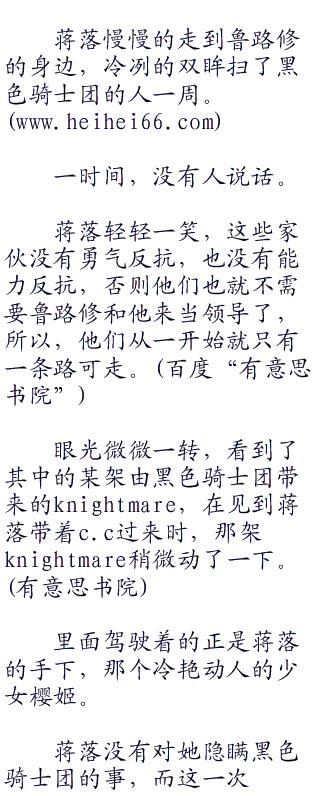 蒋落慢慢的走到鲁路修
的身边，冷冽的双眸扫了黑
色骑士团的人一周。
(www.heihei66.com)
一时间，没有人说话。
蒋落轻轻一笑，这些家
伙没有勇气反抗，也没有能
力反抗，否则他们也就不需
要鲁路修和他来当领导了，
所以，他们从一开始就只有
一条路可走。(百度“有意思
书院”)
眼光微微一转，看到了
其中的某架由黑色骑士团带
来的knightmare，在见到蒋
落带着c.c过来时，那架
knightmare稍微动了一下。
(有意思书院)
里面驾驶着的正是蒋落
的手下，那个冷艳动人的少
女樱姬。
蒋落没有对她隐瞒黑色
骑士团的事，而这一次